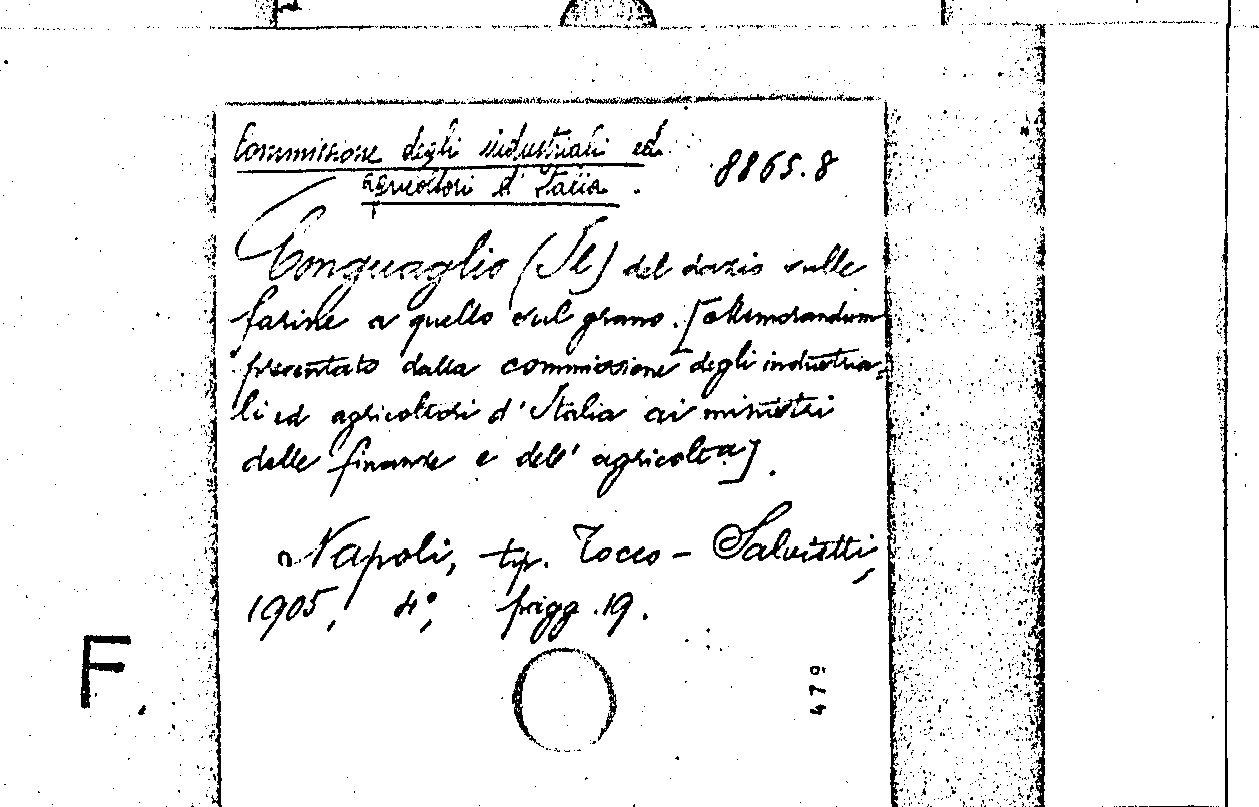 Commissione degli industriali ed 8865.8
agricoltori d'Italia.
Conguaglio (Il) del dazio sulle
farine a quello sul grano. [Memorandum
presentato dalla commissione degli industria-
li ed agricoltori d'Italia ai ministri
delle finanze e dell'agricolta].
Napoli, tip. Tocco - Salvietti,
1905, 4°, pagg. 19.
F.
479